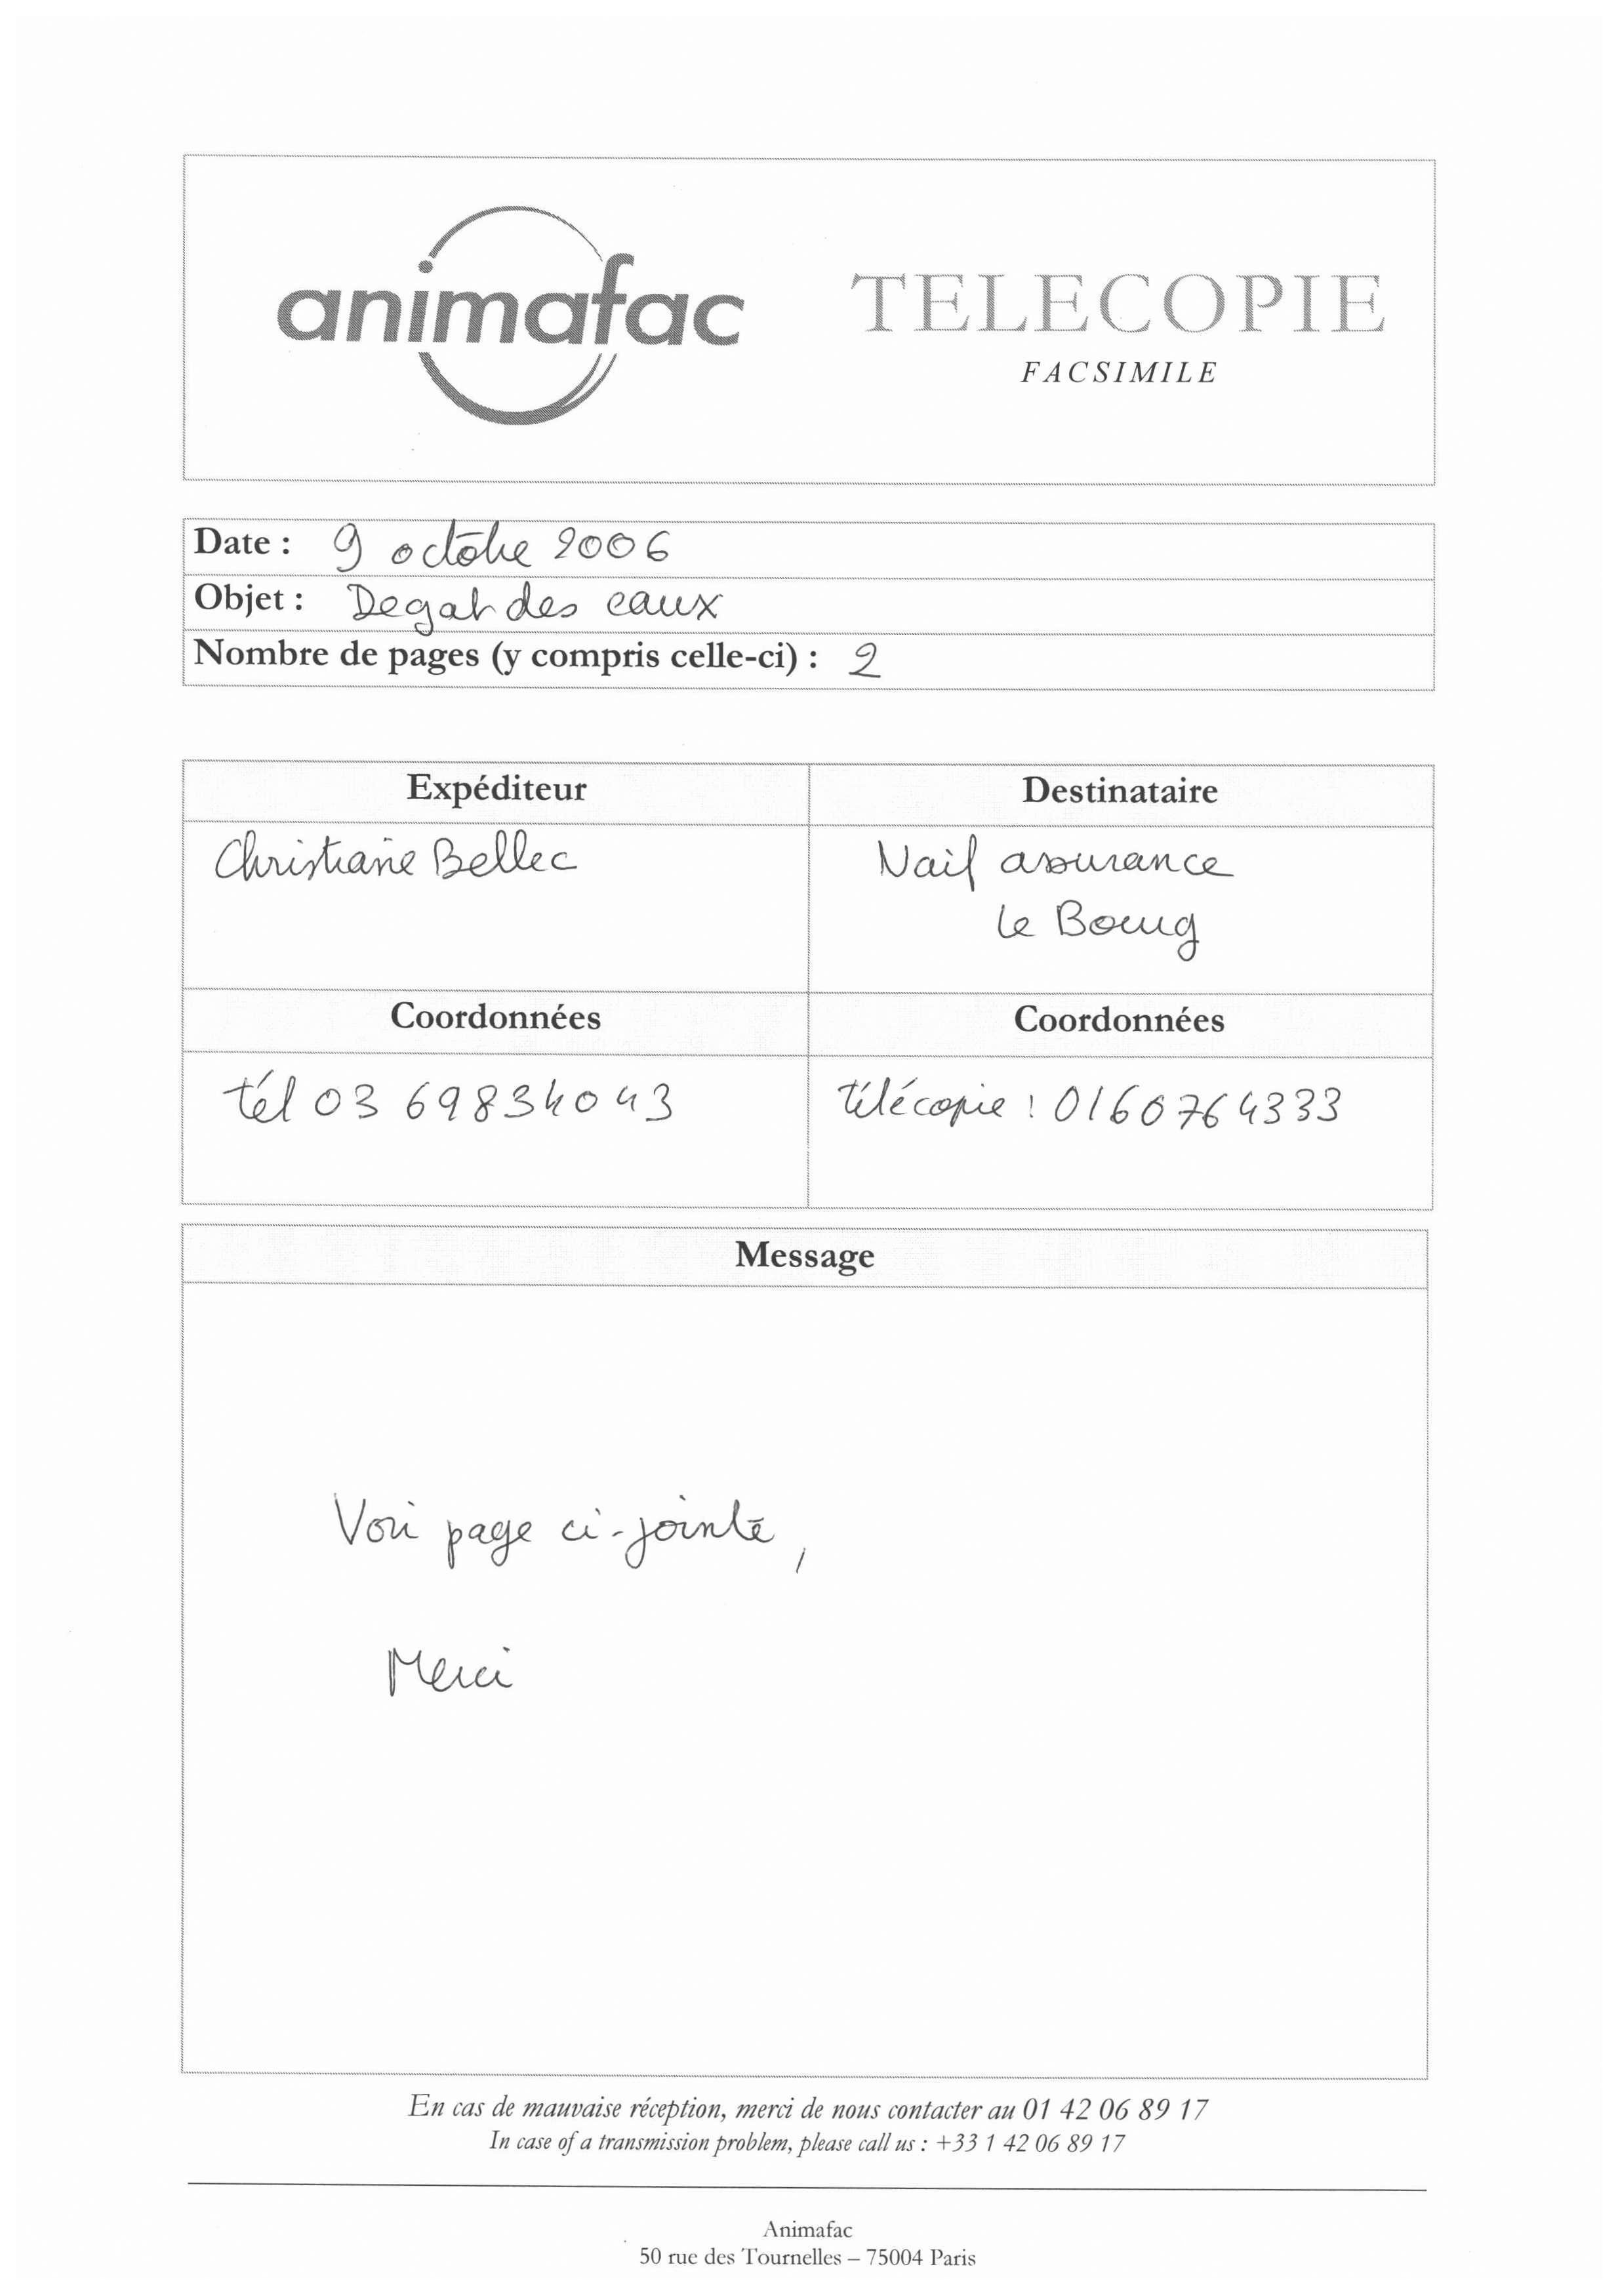 animafac
TELECOPIE
FACSIMILE
Date : 9 octobre 2006
Objet : Degat des eaux
Nombre de pages (y compris celle-ci) : 2
Expéditeur
Destinataire
Christiane Bellec
Naif assurance
le Bourg
Coordonnées
Coordonnées
tél 03 69834043
télécopie : 0160764333
Message
Voir page ci-jointe,
Merci
En cas de mauvaise réception, merci de nous contacter au 01 42 06 89 17
In case of a transmission problem, please call us : +33 1 42 06 89 17
Animafac
50 rue des Tournelles – 75004 Paris